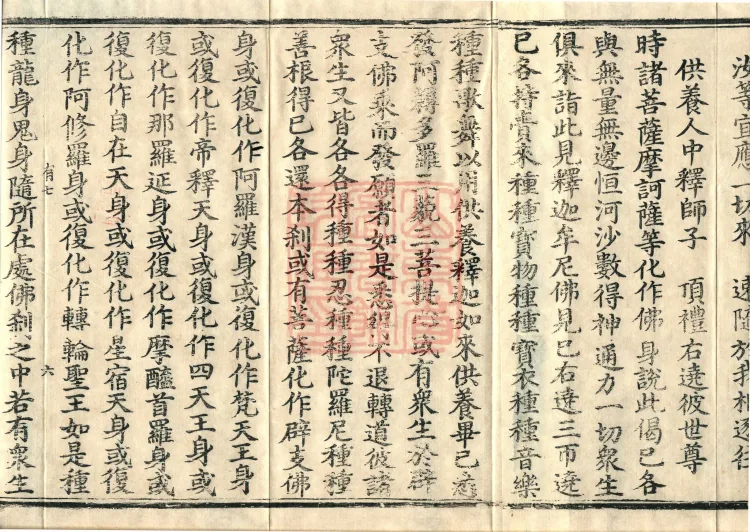 汝等宜應一切來　速隨於我相逐往
供養人中釋師子　頂禮右遶彼世尊
時諸菩薩摩訶薩等化作佛身說此偈已各
與無量無邊恒河沙數得神通力一切衆生
俱來詣此見釋迦牟尼佛見已右遶三帀遶
已各持寶來種種寶物種種寶衣種種音樂
種種歌舞以用供養釋迦如來供養畢已
發阿耨多羅三藐三菩提心或有衆生於辟
支佛乘而發願者如是悉得不退轉道彼諸
衆生又皆各各得種種忍種種陀羅尼種種
善根得已各還本刹或有菩薩化作辟支佛
身或復化作阿羅漢身或復化作梵天王身
或復化作帝釋天身或復化作四天王身或
復化作那羅延身或復化作摩醯首羅身或
復化作自在天身或復化作星宿天身或復
化作阿修羅身或復化作轉輪聖王如是種
有七　六
種龍身鬼身隨所在處佛刹之中若有衆生